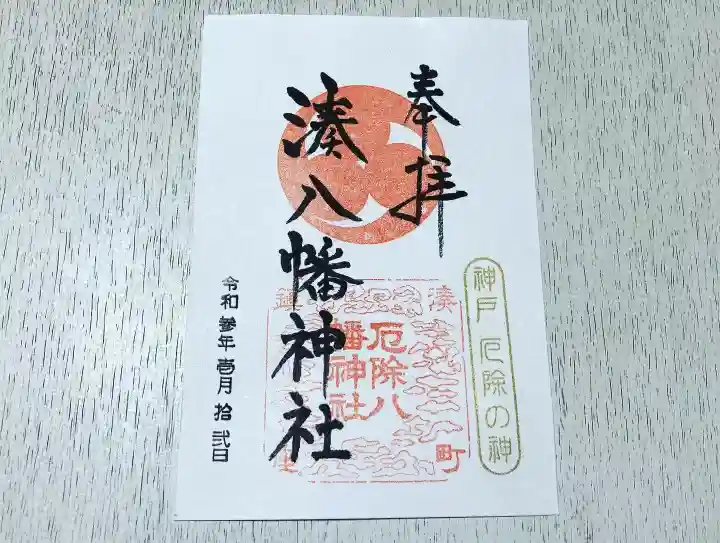 奉拝
神戸 厄除の神
湊八幡神社
湊町
厄除八
幡神社
令和参年壱月拾弐日